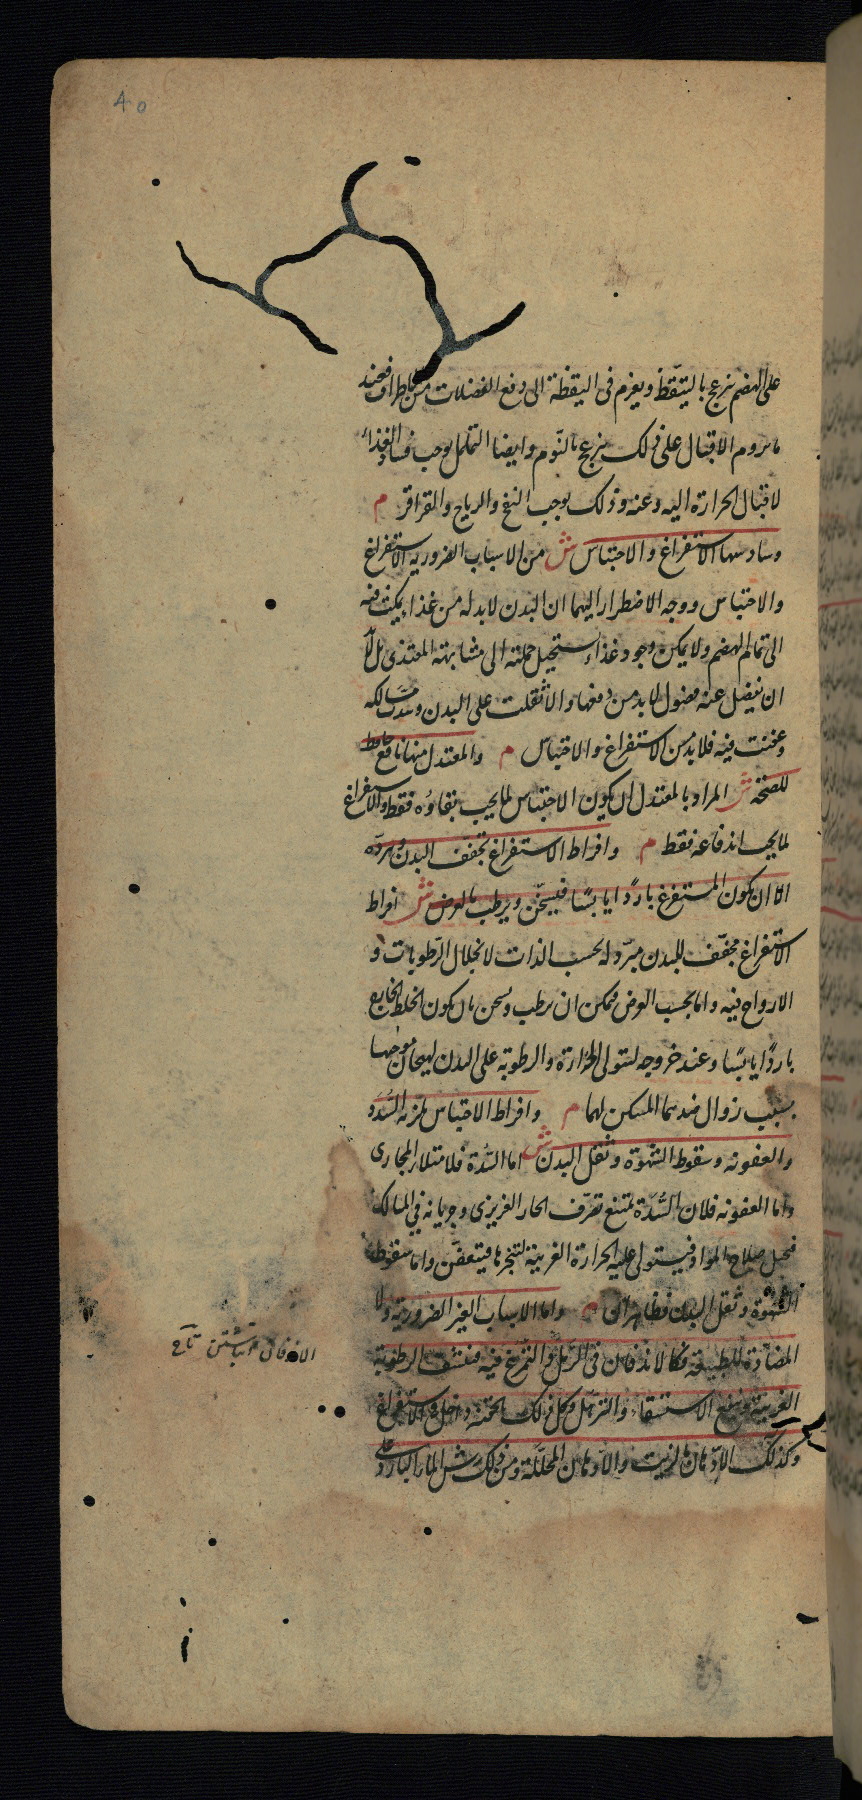 40
على الهضم نزعج بالتيقظ ويعزم فى اليقظة الى دفع الفضلات من الاطراف فعند
ما يروم الاقبال على ذلك نزعج بالنوم وايضا التململ يوجب فساد الغذاء
لاقبال الحرارة اليه وعنه وذلك يوجب النفخ والرياح والقراقر م
وسادسها الاستفراغ والاحتباس ش من الاسباب الضرورية الاستفراغ
والاحتباس ووجه الاضطرار اليهما ان البدن لابد له من غذاء يمكث فيه
الى تمام الهضم ولا يمكن وجود غذاء يستحيل جملته الى مشابهة المغتذى بل لا
ان يفضل عنه فضول لابد من دفعها والا ثقلت على البدن وسدت مسالكه
وعفنت فيه فلابد من الاستفراغ والاحتباس م والمعتدل منهما نافع حافظ
للصحة ش المراد بالمعتدل ان يكون الاحتباس لما يجب بقاؤه فقط والاستفراغ
لما يجب اندفاعه فقط م وافراط الاستفراغ يجفف البدن ويبرده
الا ان يكون المستفرغ باردًا يابسًا فيسخن ويرطب بالعرض ش افراط
الاستفراغ مجفف للبدن مبرد له بحسب الذات لانحلال الرطوبات و
الارواح فيه واما بحسب العرض فيمكن ان يرطب ويسخن بان يكون الخلط الخارج
باردًا يابسًا وعند خروجه تستولى الحرارة والرطوبة على البدن لهيجان موجبها
بسبب زوال ضدهما المسكن لهما م وافراط الاحتباس يلزمه السدد
والعفونه وسقوط الشهوة وثقل البدن ش اما السدة فلامتلاء المجارى
واما العفونه فلان السدة تمنع تصرف الحار الغريزى وجريانه في المسالك
صلاح المواد فيستولى عليه الحرارة الغريبة فيتعفن واما سقوط
الشهوة وثقل البدن فظاهران م واما الاسباب الغير الضرورية ولا
المضادة للطبيعة فكالاندفان فى الرمل والتمرغ فيه فينشف الرطوبة
الغريبة وينفع الاستسقاء والترهل وكل ذلك داخل فى الاستفراغ
وكذلك الادهان بالزيت والادهان المحللة ومن ذلك رش الماء البارد على
الاندفان تاج